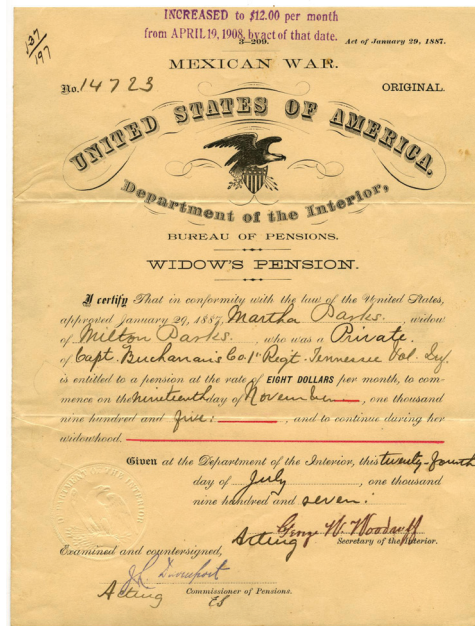 INCREASED to $12.00 per month
from APRIL 19, 1908, by act of that date.
137/197
3—209.
Act of January 29, 1887.
MEXICAN WAR.
No. 14723
ORIGINAL.
UNITED STATES OF AMERICA.
Department of the Interior,
BUREAU OF PENSIONS.
WIDOW'S PENSION.
I certify That in conformity with the law of the United States,
approved January 29, 1887, Martha Parks widow
of Milton Parks who was a Private
of Capt. Buchanan's Co. 1st Regt. Tennessee Vol. Inf.
is entitled to a pension at the rate of EIGHT DOLLARS per month, to com-
mence on the nineteenth day of November, one thousand
nine hundred and five, and to continue during her
widowhood.
Given at the Department of the Interior, this twenty fourth
day of July, one thousand
nine hundred and seven.
George W. Woodruff
Acting Secretary of the Interior.
Examined and countersigned,
Davenport
Acting Commissioner of Pensions.